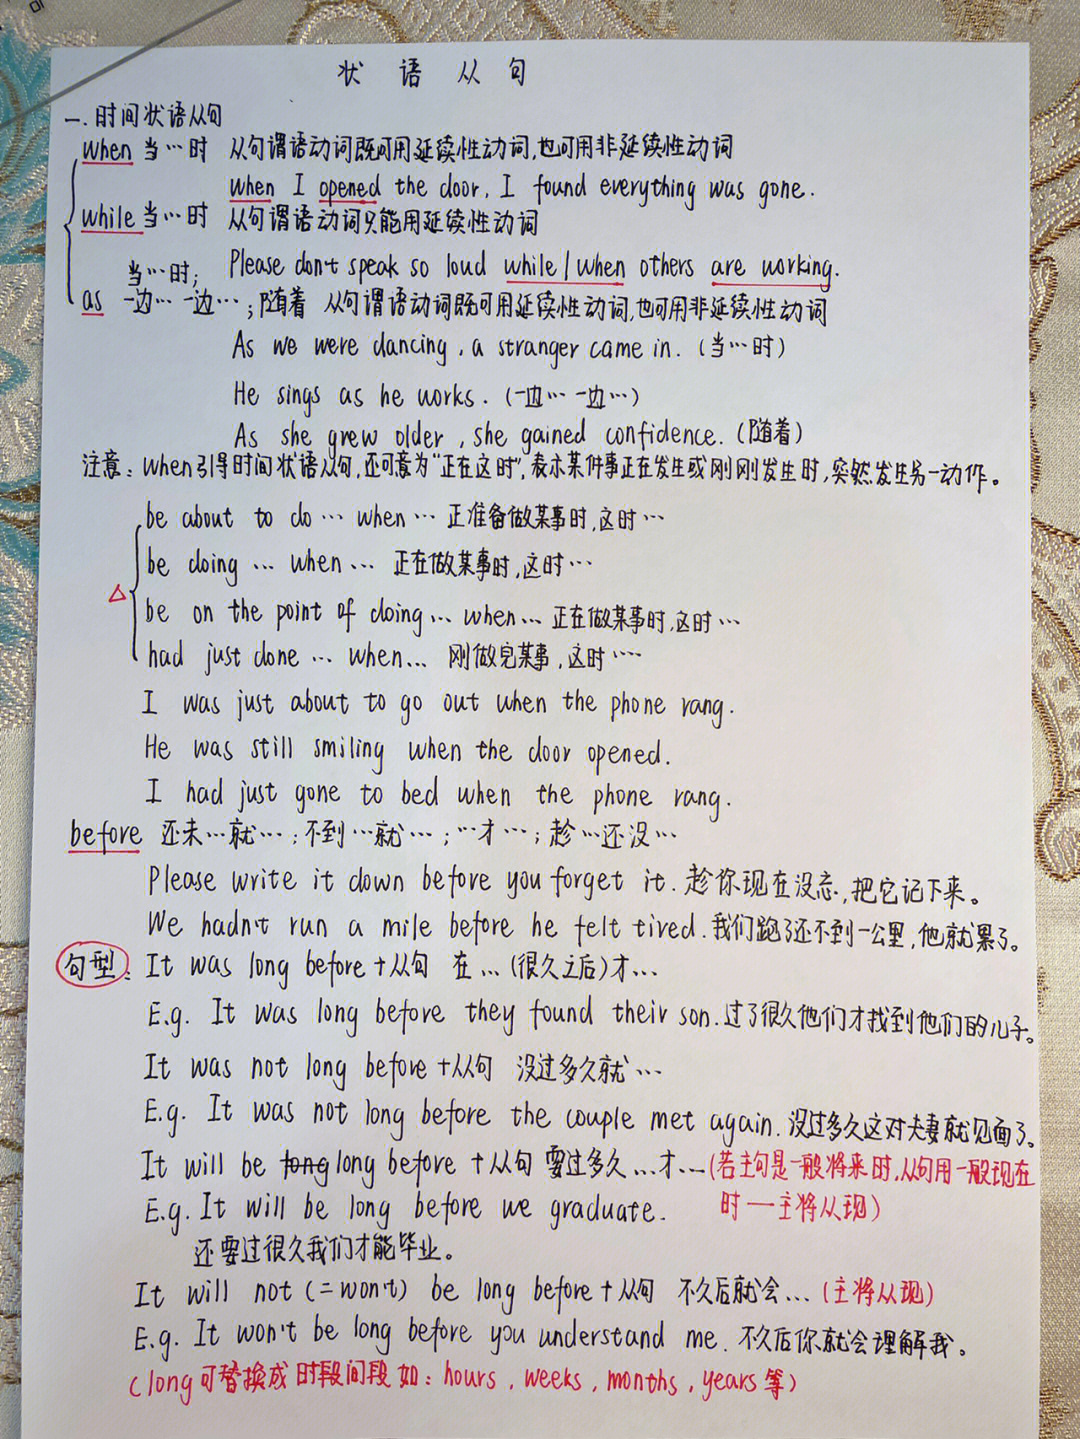 状语从句
一.时间状语从句
when 当…时 从句谓语动词既可用延续性动词,也可用非延续性动词
when I opened the door, I found everything was gone.
while 当…时 从句谓语动词只能用延续性动词
Please don't speak so loud while/when others are working.
当…时;
as 一边…一边…;随着 从句谓语动词既可用延续性动词,也可用非延续性动词
As we were dancing, a stranger came in. (当…时)
He sings as he works. (一边…一边…)
As she grew older, she gained confidence. (随着)
注意: when引导时间状语从句,还可意为"正在这时",表示某件事正在发生或刚刚发生时,突然发生另一动作。
be about to do … when … 正准备做某事时,这时…
be doing … when … 正在做某事时,这时…
△
be on the point of doing … when … 正在做某事时,这时…
had just done … when … 刚做完某事,这时……
I was just about to go out when the phone rang.
He was still smiling when the door opened.
I had just gone to bed when the phone rang.
before 还未…就…;不到…就…;…才…;趁…还没…
Please write it down before you forget it. 趁你现在没忘,把它记下来。
We hadn't run a mile before he felt tired. 我们跑了还不到一公里,他就累了。
句型: It was long before+从句 在…(很久之后)才…
E.g. It was long before they found their son. 过了很久他们才找到他们的儿子。
It was not long before+从句 没过多久就…
E.g. It was not long before the couple met again. 没过多久这对夫妻就见面了。
It will be long before +从句 要过多久…才…(若主句是一般将来时,从句用一般现在
E.g. It will be long before we graduate. 时—主将从现)
还要过很久我们才能毕业。
It will not (=won't) be long before+从句 不久后就会…(主将从现)
E.g. It won't be long before you understand me. 不久后你就会理解我。
(long可替换成时段间段如: hours, weeks, months, years等)